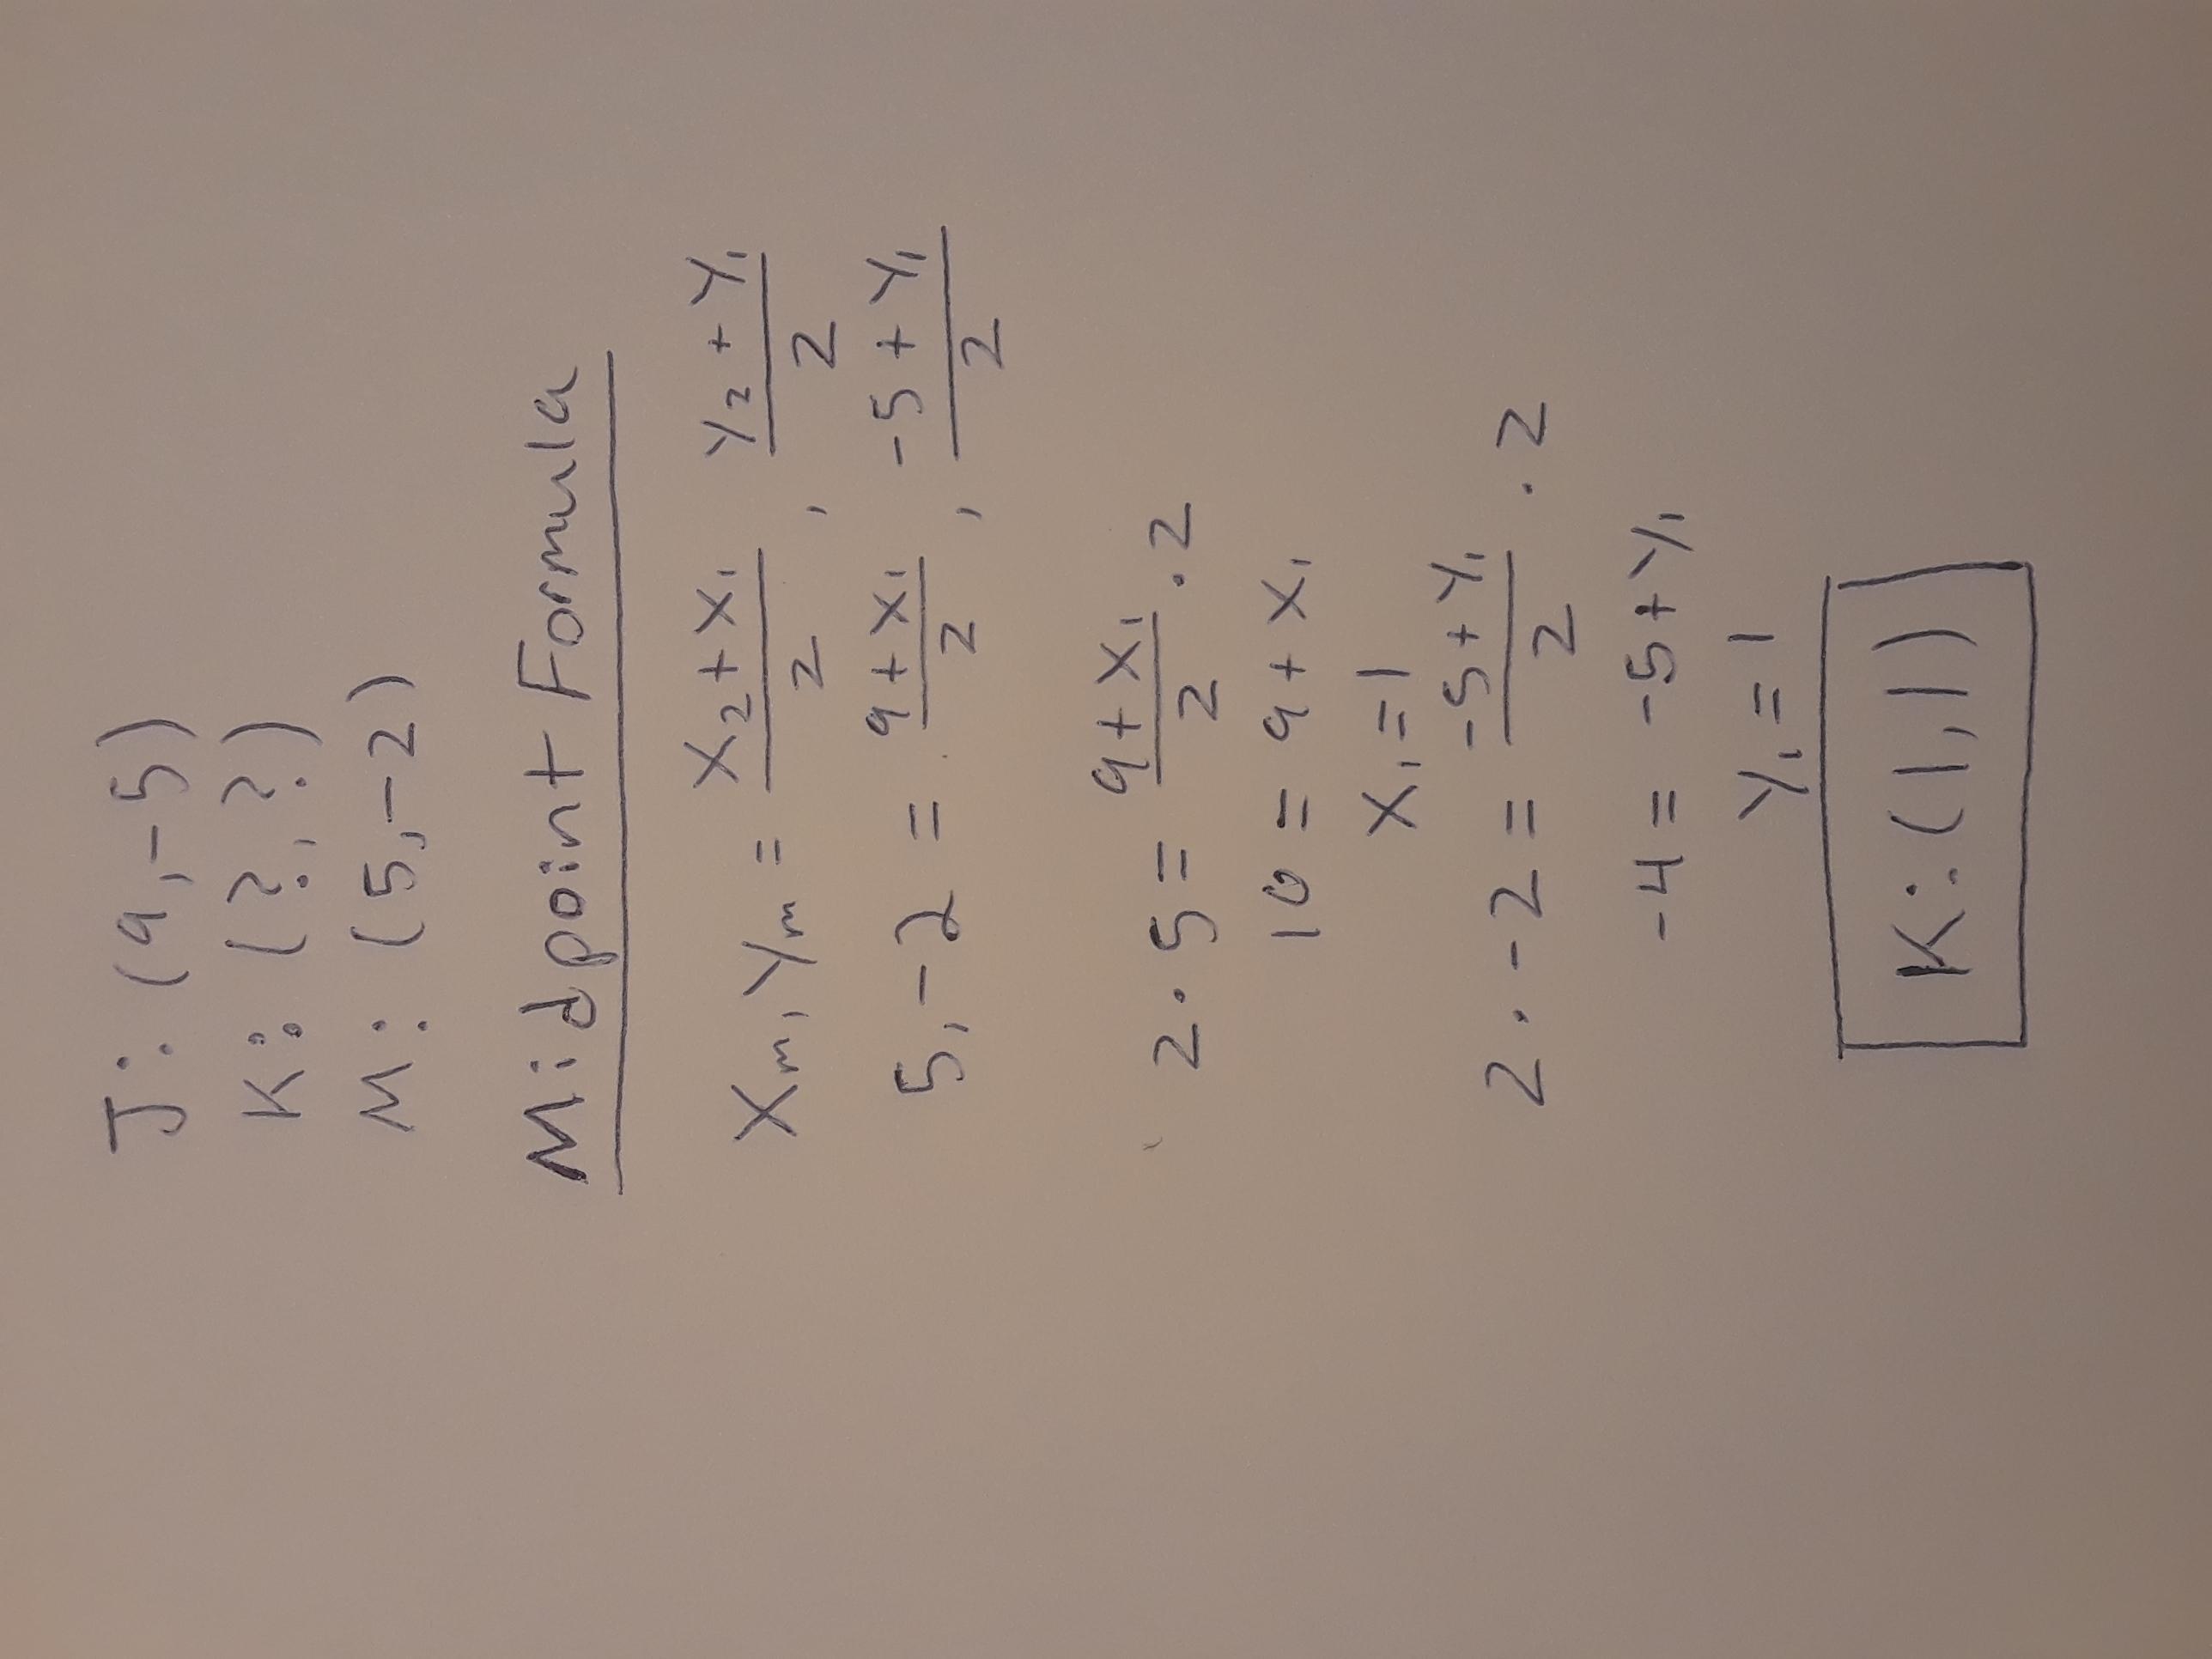 J: (9,-5)
K: (?,?)
M: (5,-2)
Midpoint Formula
Xm, Ym = X2+X1/2, Y2+Y1/2
5,-2 = 9+X1/2, -5+Y1/2
2·5 = 9+X1/2·2
10 = 9+X1
X1=1
2·-2 = -5+Y1/2·2
-4 = -5+Y1
Y1=1
K: (1,1)